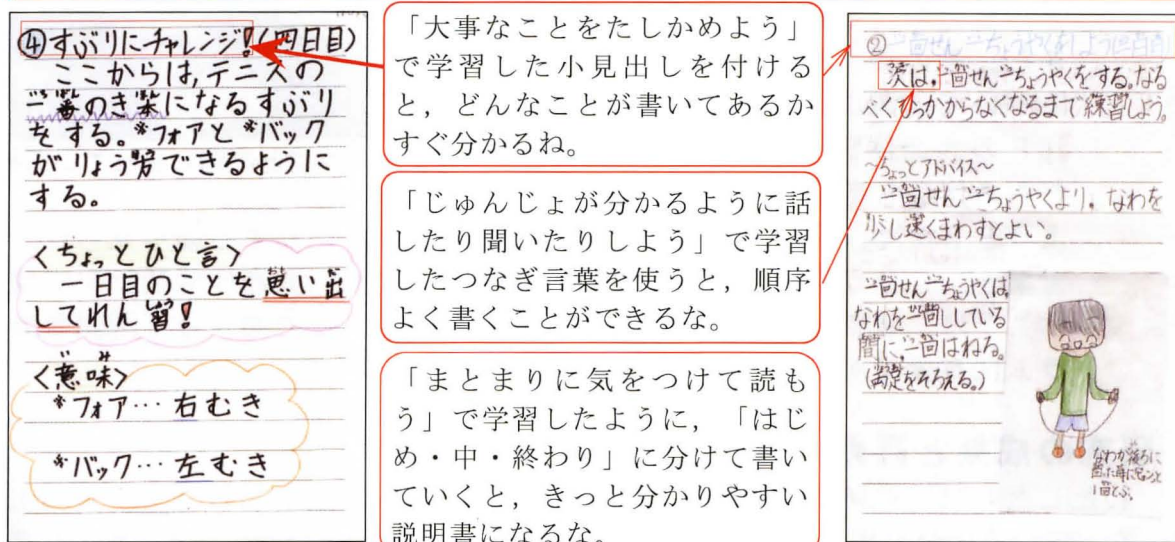 ④すぶりにチャレンジ!(四日目)
ここからは,テニスの
一番のき本になるすぶり
をする。*フォアと*バック
がりょう方できるように
する。
<ちょっとひと言>
一日目のことを思い出
してれん習!
<意味>
*フォア…右むき
*バック…左むき
「大事なことをたしかめよう」
で学習した小見出しを付ける
と,どんなことが書いてあるか
すぐ分かるね。
「じゅんじょが分かるように話
したり聞いたりしよう」で学習
したつなぎ言葉を使うと,順序
よく書くことができるな。
「まとまりに気をつけて読も
う」で学習したように,「はじ
め・中・終わり」に分けて書い
ていくと,きっと分かりやすい
説明書になるな。
②
次は,二回せん一ちょうやくをする。なる
べくひっかからなくなるまで練習しよう。
~ちょっとアドバイス~
なわを
少し速くまわすとよい。
なわを
間に,一回はねる。
(両足をそろえる。)